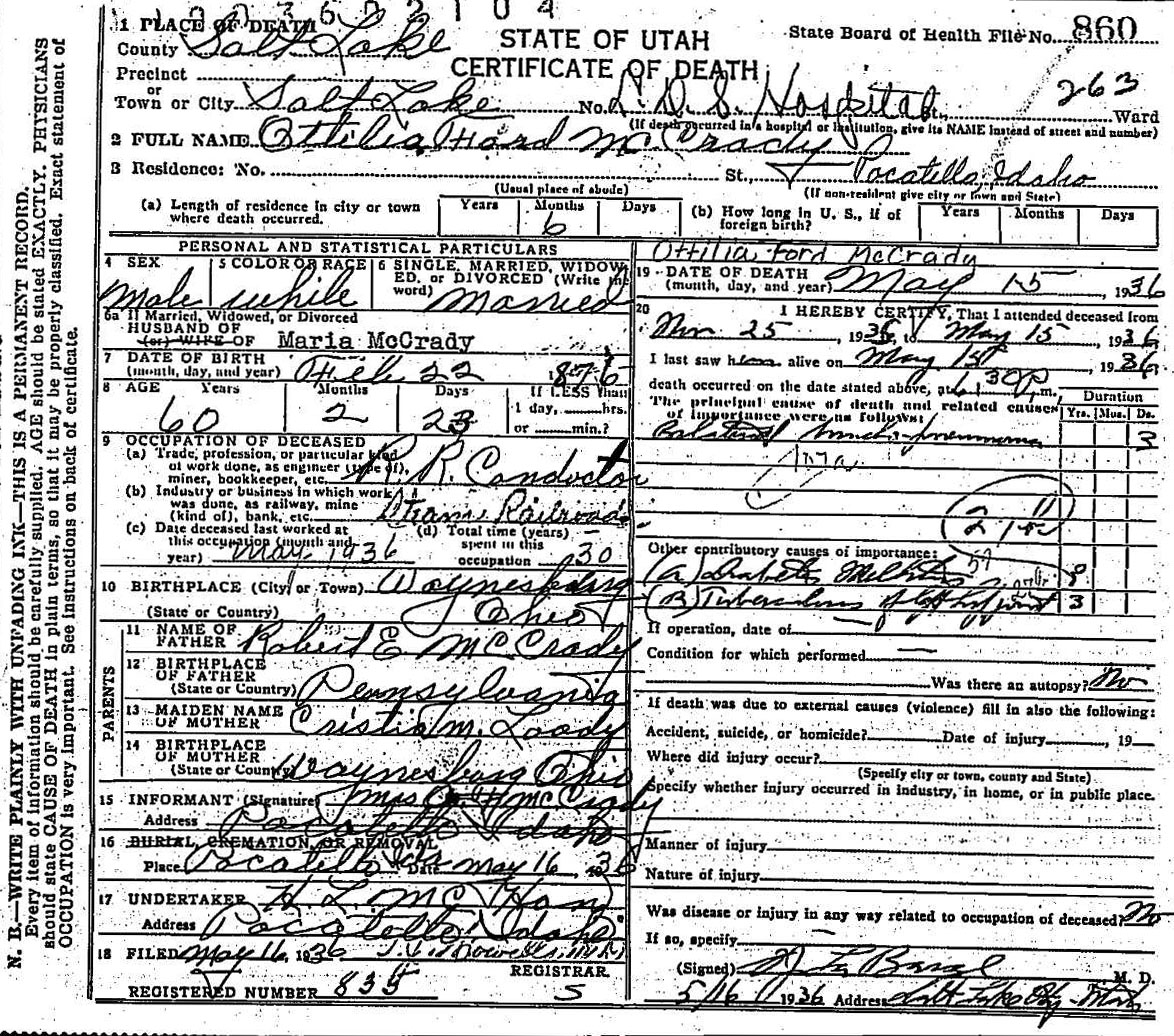 1 PLACE OF DEATH
County Salt Lake
STATE OF UTAH
CERTIFICATE OF DEATH
State Board of Health File No. 860
263
Precinct
or
Town or City Salt Lake No. L. D. S. Hospital St., Ward
(If death occurred in a hospital or institution, give its NAME instead of street and number)
2 FULL NAME Ottilia Ford McCrady
3 Residence: No. St., Pocatello, Idaho
(Usual place of abode) (If non-resident give city or town and State)
(a) Length of residence in city or town where death occurred. Years Months 6 Days
(b) How long in U. S., if of foreign birth? Years Months Days
PERSONAL AND STATISTICAL PARTICULARS
4 SEX Male
5 COLOR OR RACE white
6 SINGLE, MARRIED, WIDOWED, or DIVORCED (Write the word) Married
6a If Married, Widowed, or Divorced
HUSBAND OF
(or) WIFE OF Maria McCrady
7 DATE OF BIRTH
(month, day, and year) Feb 22 1876
8 AGE Years 60 Months 2 Days 23 If LESS than 1 day, hrs. or min.?
9 OCCUPATION OF DECEASED
(a) Trade, profession, or particular kind of work done, as engineer (type of), miner, bookkeeper, etc. R. R. Conductor
(b) Industry or business in which work was done, as railway, mine (kind of), bank, etc. Steam Railroad
(c) Date deceased last worked at this occupation (month and year) May 1936
(d) Total time (years) spent in this occupation 30
10 BIRTHPLACE (City or Town) Waynesburg
(State or Country) Ohio
PARENTS
11 NAME OF FATHER Robert E McCrady
12 BIRTHPLACE OF FATHER (State or Country) Pennsylvania
13 MAIDEN NAME OF MOTHER Cristia M.
14 BIRTHPLACE OF MOTHER (State or Country) Waynesburg Ohio
15 INFORMANT (Signature) Mrs McCrady
Address Pocatello Idaho
16 BURIAL, CREMATION, OR REMOVAL
Place Pocatello Ida Date May 16, 1936
17 UNDERTAKER H. L. McHan
Address Pocatello Idaho
18 FILED May 16, 1936
REGISTRAR
REGISTERED NUMBER 835 5
Ottilia Ford McCrady
19 DATE OF DEATH
(month, day, and year) May 15, 1936
20 I HEREBY CERTIFY, That I attended deceased from
Nov 25, 1935, to May 15, 1936
I last saw him alive on May 15, 1936
death occurred on the date stated above, at 6:30 p, m.
Duration
The principal cause of death and related causes of importance were as follows: Yrs. Mos. Ds.
Bilateral broncho-pneumonia 3
107a
Other contributory causes of importance:
59
(A) Diabetes Mellitus
(B) Tuberculosis of left hip joint 3
If operation, date of
Condition for which performed
Was there an autopsy? No
If death was due to external causes (violence) fill in also the following:
Accident, suicide, or homicide? Date of injury, 19
Where did injury occur?
(Specify city or town, county and State)
Specify whether injury occurred in industry, in home, or in public place.
Manner of injury
Nature of injury
Was disease or injury in any way related to occupation of deceased? No
If so, specify
(Signed) M. D.
5/16 1936 Address Salt Lake City
N. B.—WRITE PLAINLY WITH UNFADING INK—THIS IS A PERMANENT RECORD.
Every item of information should be carefully supplied. AGE should be stated EXACTLY. PHYSICIANS
should state CAUSE OF DEATH in plain terms, so that it may be properly classified. Exact statement of
OCCUPATION is very important. See instructions on back of certificate.